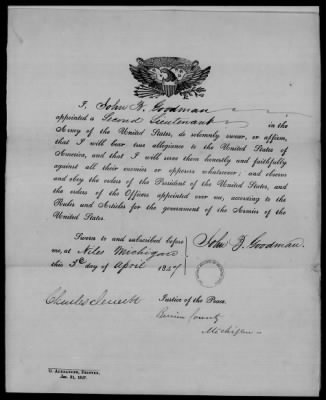 I, John B. Goodman
appointed a Second Lieutenant in the
Army of the United States, do solemnly swear, or affirm,
that I will bear true allegiance to the United States of
America, and that I will serve them honestly and faithfully
against all their enemies or opposers whatsoever; and observe
and obey the orders of the President of the United States, and
the orders of the Officers appointed over me, according to the
Rules and Articles for the government of the Armies of the
United States.
Sworn to and subscribed before
me, at Niles Michigan
this 5th day of April 1847
John B. Goodman
Charles Justice of the Peace.
Berrien County
Michigan
G. Alexander, Printer,
Jan. 21, 1847.